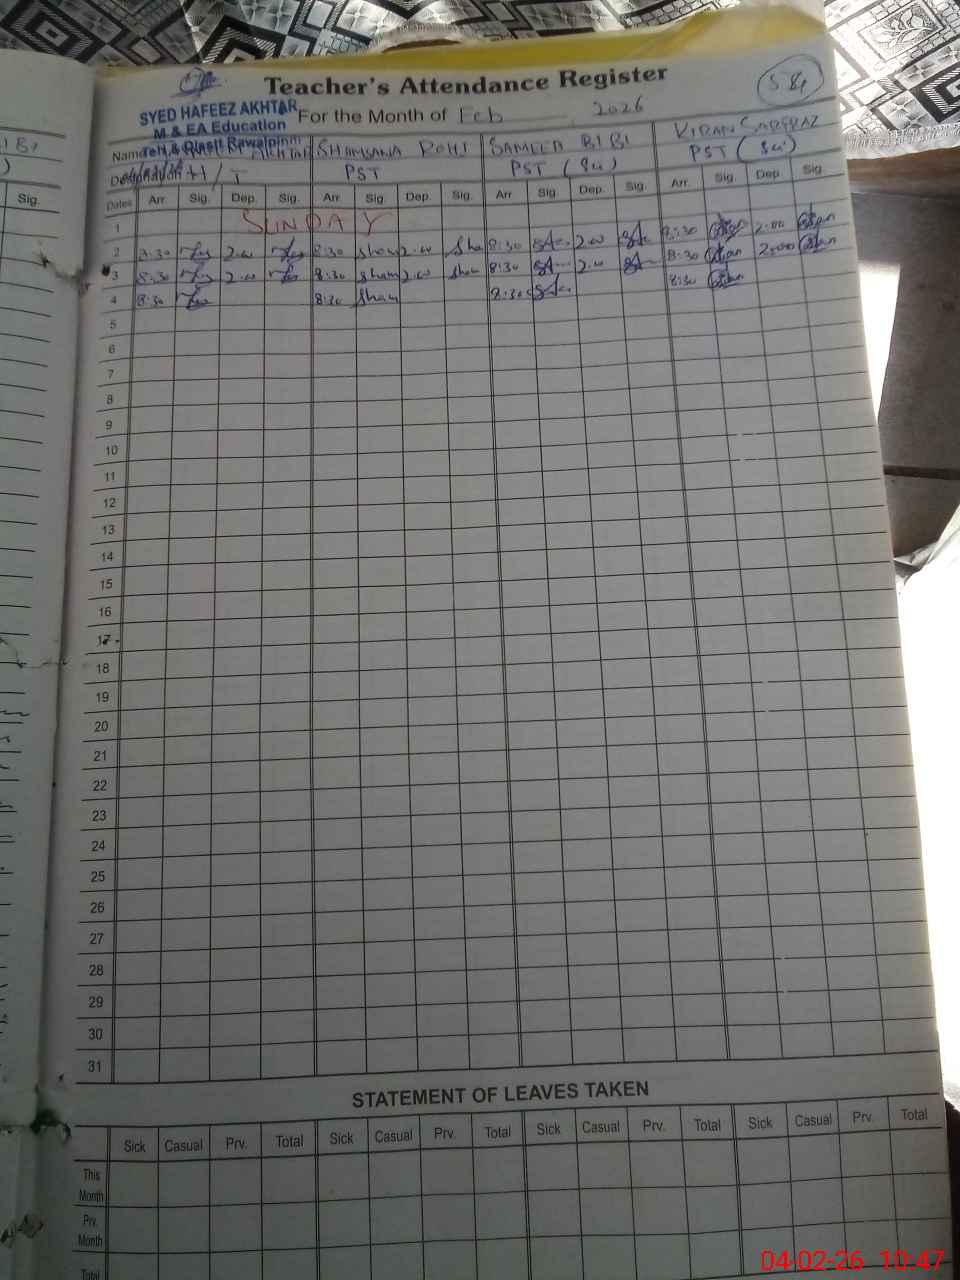 Teacher's Attendance Register
58
SYED HAFEEZ AKHTAR
M & EA Education
Teh & Distt Rawalpindi
For the Month of Feb 2026
Name AKHTAR SHAMSANA ROHI SAMEEA BIBI KIRAN SARFRAZ
Designation H/T PST PST (Sci) PST (Sci)
Dates Arr. Sig. Dep. Sig. Arr. Sig. Dep. Sig. Arr. Sig. Dep. Sig. Arr. Sig. Dep. Sig.
1 SUNDAY
2 8:30 2.00 8:30 Sham 2.00 Sha 8:30 2.00 8:30 2:00
3 8:30 2.00 8:30 Sham 2.00 Sham 8:30 2.00 8:30
4 8:30 8:30 Sham 8:30 8:30
5
6
7
8
9
10
11
12
13
14
15
16
17
18
19
20
21
22
23
24
25
26
27
28
29
30
31
STATEMENT OF LEAVES TAKEN
Sick Casual Prv. Total Sick Casual Prv. Total Sick Casual Prv. Total Sick Casual Prv. Total
This Month
Prv. Month
Total
Sig.
04-02-26 10:47